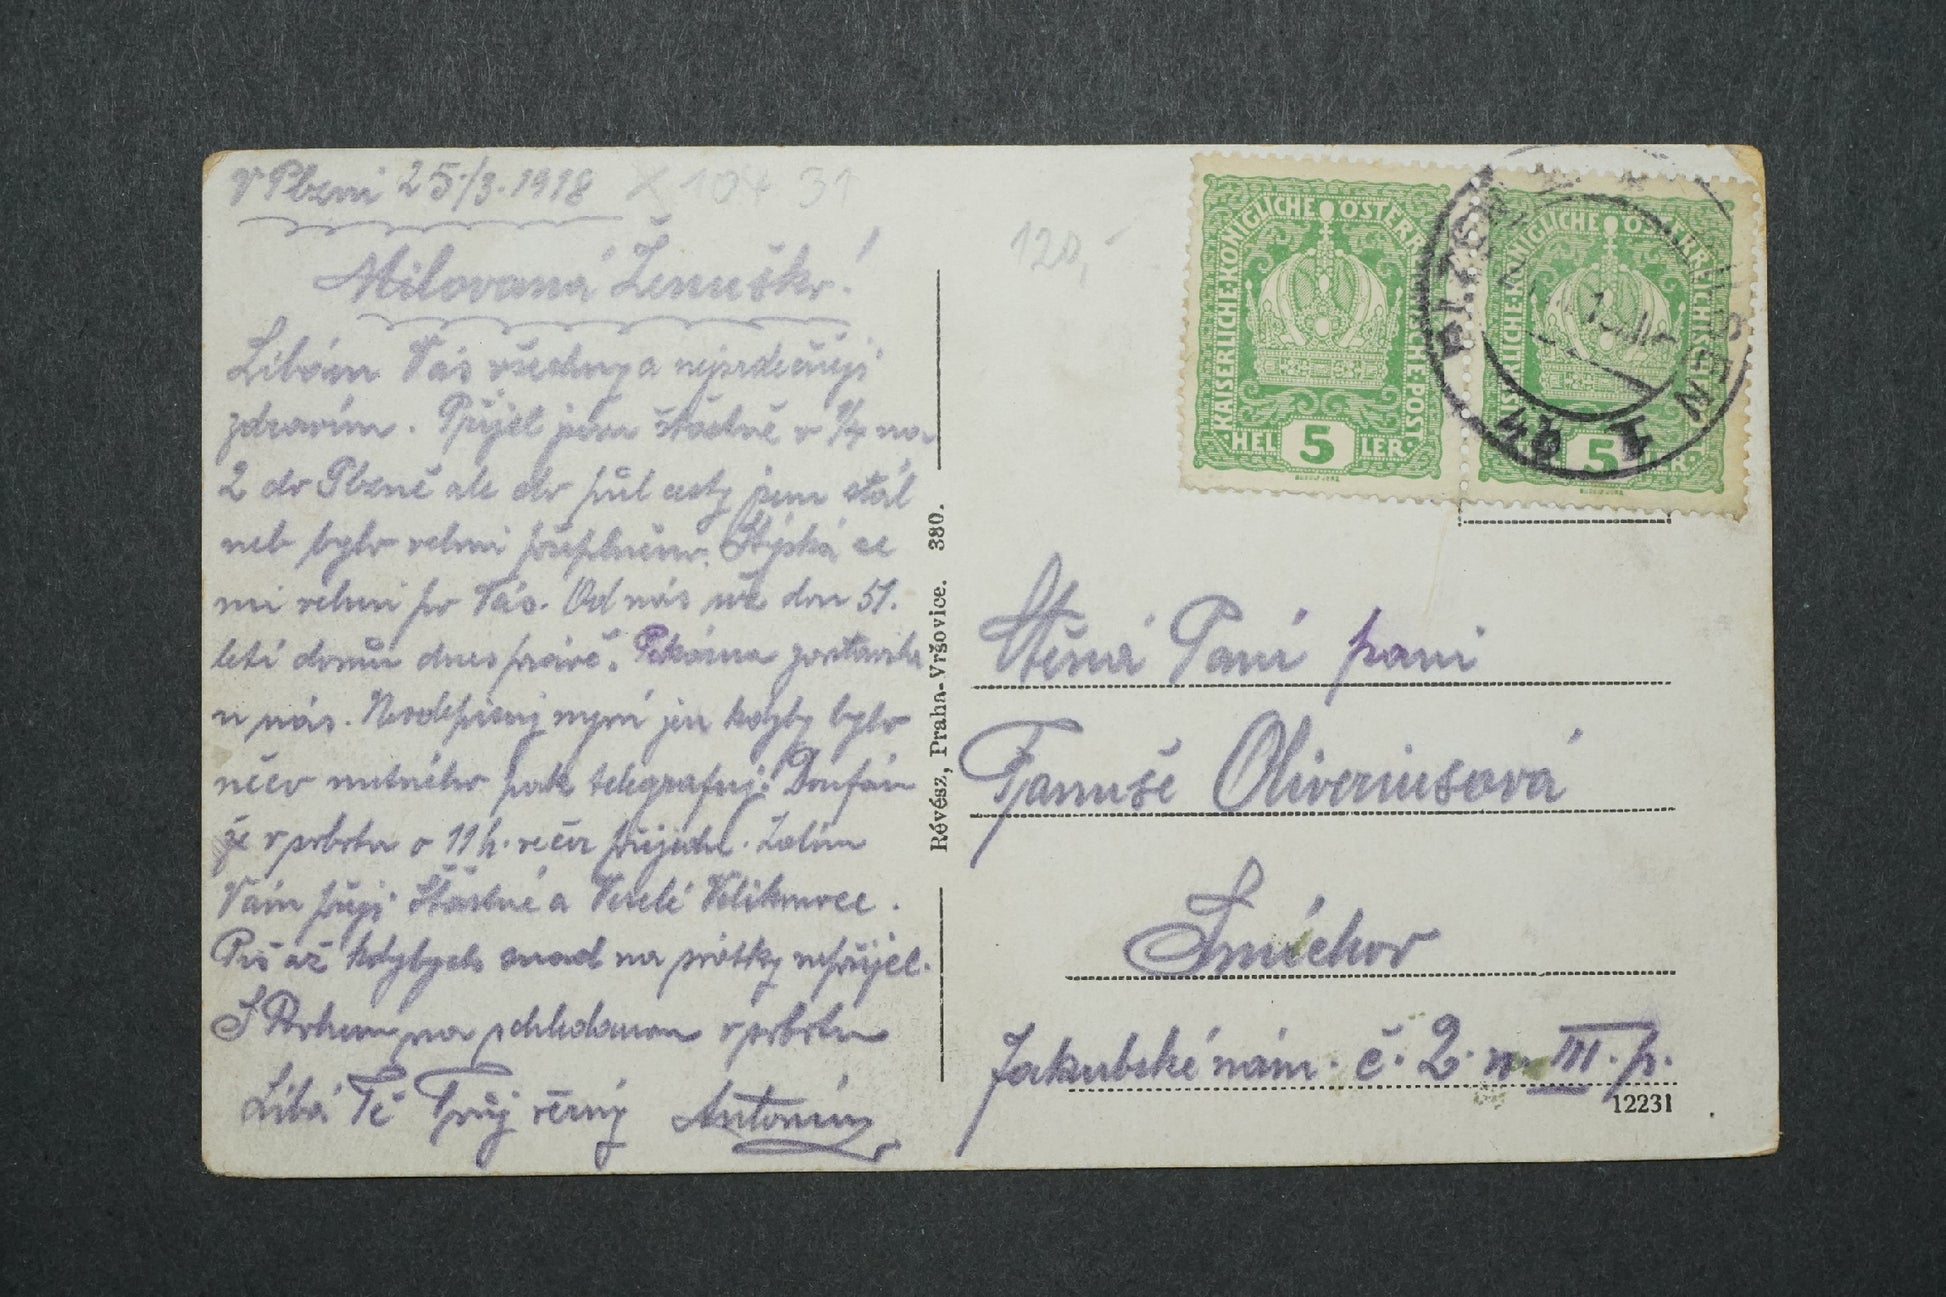 V Plzni 25./3. 1918
X 104 31
Milovaná Ženuško!
Líbám Vás všechny a nejsrdečněji
zdravím. Přijel jsem šťastně v ¼ na
2 do Plzně ale do půl cesty jsem stál
neb bylo velmi přeplněno. Stýská se
mi velmi po Vás. Od nás už don 51.
letí domů dnes právě. Pekárna zůstavila
u nás. Neodepisuj nyní jen kdyby bylo
něco nutného pak telegrafuj. Doufám
že v sobotu o 11 h. večer přijedu. Zatím
Vám přeji Šťastné a Veselé Velikonoce.
Piš až kdybych snad na svátky nepřijel.
S Bohem na shledanou v sobotu
Líbá Tě Tvůj věrný Antonín
Révész, Praha-Vršovice. 380.
120,-
KAISERLICHE·KÖNIGLICHE ÖSTERREICHISCHE·POST
HEL 5 LER
KAISERLICHE·KÖNIGLICHE ÖSTERREICHISCHE
HEL 5 LER
PLZEŇ PILSEN
Ctěná Paní paní
Fanuše Oliveriusová
Smíchov
Jakubské nám. č. 2. n. III. p.
12231